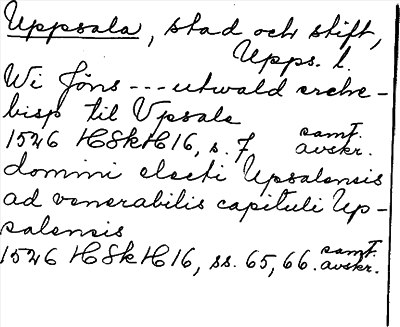 Uppsala, stad och stift,
Upps. l.
Wi Jöns --- utwald erche-
bisp til Vpsale
1526 HSkH 16, s. 7 samt. avskr.
domini electi Upsalensis
ad venerabilis capituli Up-
salensis
1526 HSkH 16, ss. 65, 66. samt. avskr.